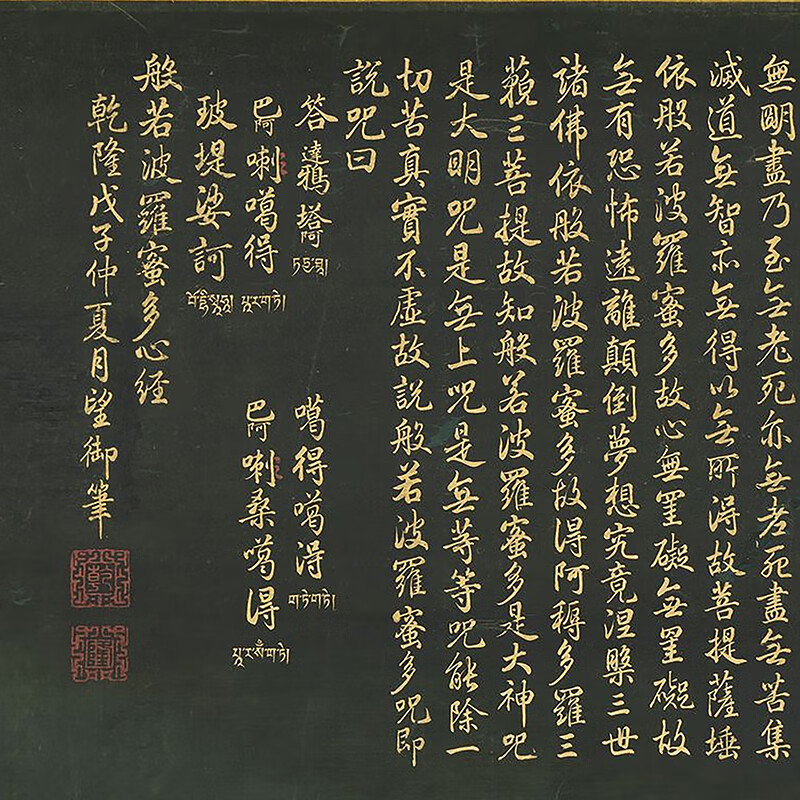 無明盡乃至无老死亦无老死盡无苦集
滅道无智亦无得以无所得故菩提薩埵
依般若波羅蜜多故心無罣礙无罣礙故
无有恐怖遠離顛倒夢想究竟涅槃三世
諸佛依般若波羅蜜多故得阿耨多羅三
藐三菩提故知般若波羅蜜多是大神咒
是大明咒是无上咒是无等等咒能除一
切苦真實不虛故說般若波羅蜜多咒即
說咒曰
答達鴉塔阿 ཏདྱ་ཐཱ། 噶得噶得 ག་ཏེ་ག་ཏེ།
巴阿喇噶得 པཱ་ར་ག་ཏེ། 巴阿喇桑噶得 པཱ་ར་སཾ་ག་ཏེ།
玻堤娑訶
般若波羅蜜多心経
乾隆戊子仲夏月望御筆
乾
隆